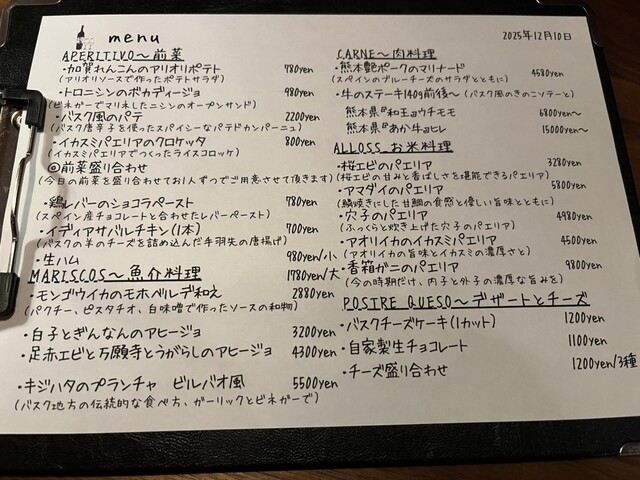 menu
2025年12月10日
APERITIVO～前菜
・加賀れんこんのアリオリポテト 780yen
(アリオリソースで作ったポテトサラダ)
・トロニシンのボカディージョ 980yen
(ビネガーでマリネしたニシンのオープンサンド)
・バスク風のパテ 2200yen
(バスク唐辛子を使ったスパイシーなパテドカンパーニュ)
・イカスミパエリアのクロケッタ 800yen
(イカスミパエリアでつくったライスコロッケ)
◎前菜盛り合わせ
(今日の前菜を盛り合わせてお1人ずつでご用意させて頂きます)
・鶏レバーのショコラペースト 780yen
(スペイン産チョコレートと合わせたレバーペースト)
・イディアサバルチキン(1本) 700yen
(バスクの羊のチーズを詰め込んだ手羽先の唐揚げ)
・生ハム 980yen/小
1780yen/大
MARISCOS～魚介料理
・モンゴウイカのモホベルデ和え 2880yen
(パクチー、ピスタチオ、白味噌で作ったソースの和物)
・白子とぎんなんのアヒージョ 3200yen
・足赤エビと万願寺とうがらしのアヒージョ 4300yen
・キジハタのプランチャ ビルバオ風 5500yen
(バスク地方の伝統的な食べ方、ガーリックとビネガーで)
CARNE～肉料理
・熊本艶ポークのマリナード 4580yen
(スペインのブルーチーズのサラダとともに)
・牛のステーキ140g前後～(バスク風のきのこソテーと)
熊本県『和王』ウチモモ 6800yen～
熊本県『あか牛』ヒレ 15000yen～
ALLOSS お米料理
・桜エビのパエリア 3280yen
(桜エビの甘みと香ばしさを堪能できるパエリア)
・アマダイのパエリア 5800yen
(鱗焼きにした甘鯛の食感と優しい旨味とともに)
・穴子のパエリア 4980yen
(ふっくらと炊き上げた穴子のパエリア)
・アオリイカのイカスミパエリア 4500yen
(アオリイカの旨味とイカスミの濃厚さと)
・香箱ガニのパエリア 9800yen
(今の時期だけ、内子と外子の濃厚な旨みを)
POSTRE QUESO～デザートとチーズ
・バスクチーズケーキ(1カット) 1200yen
・自家製生チョコレート 1100yen
・チーズ盛り合わせ 1200yen/3種